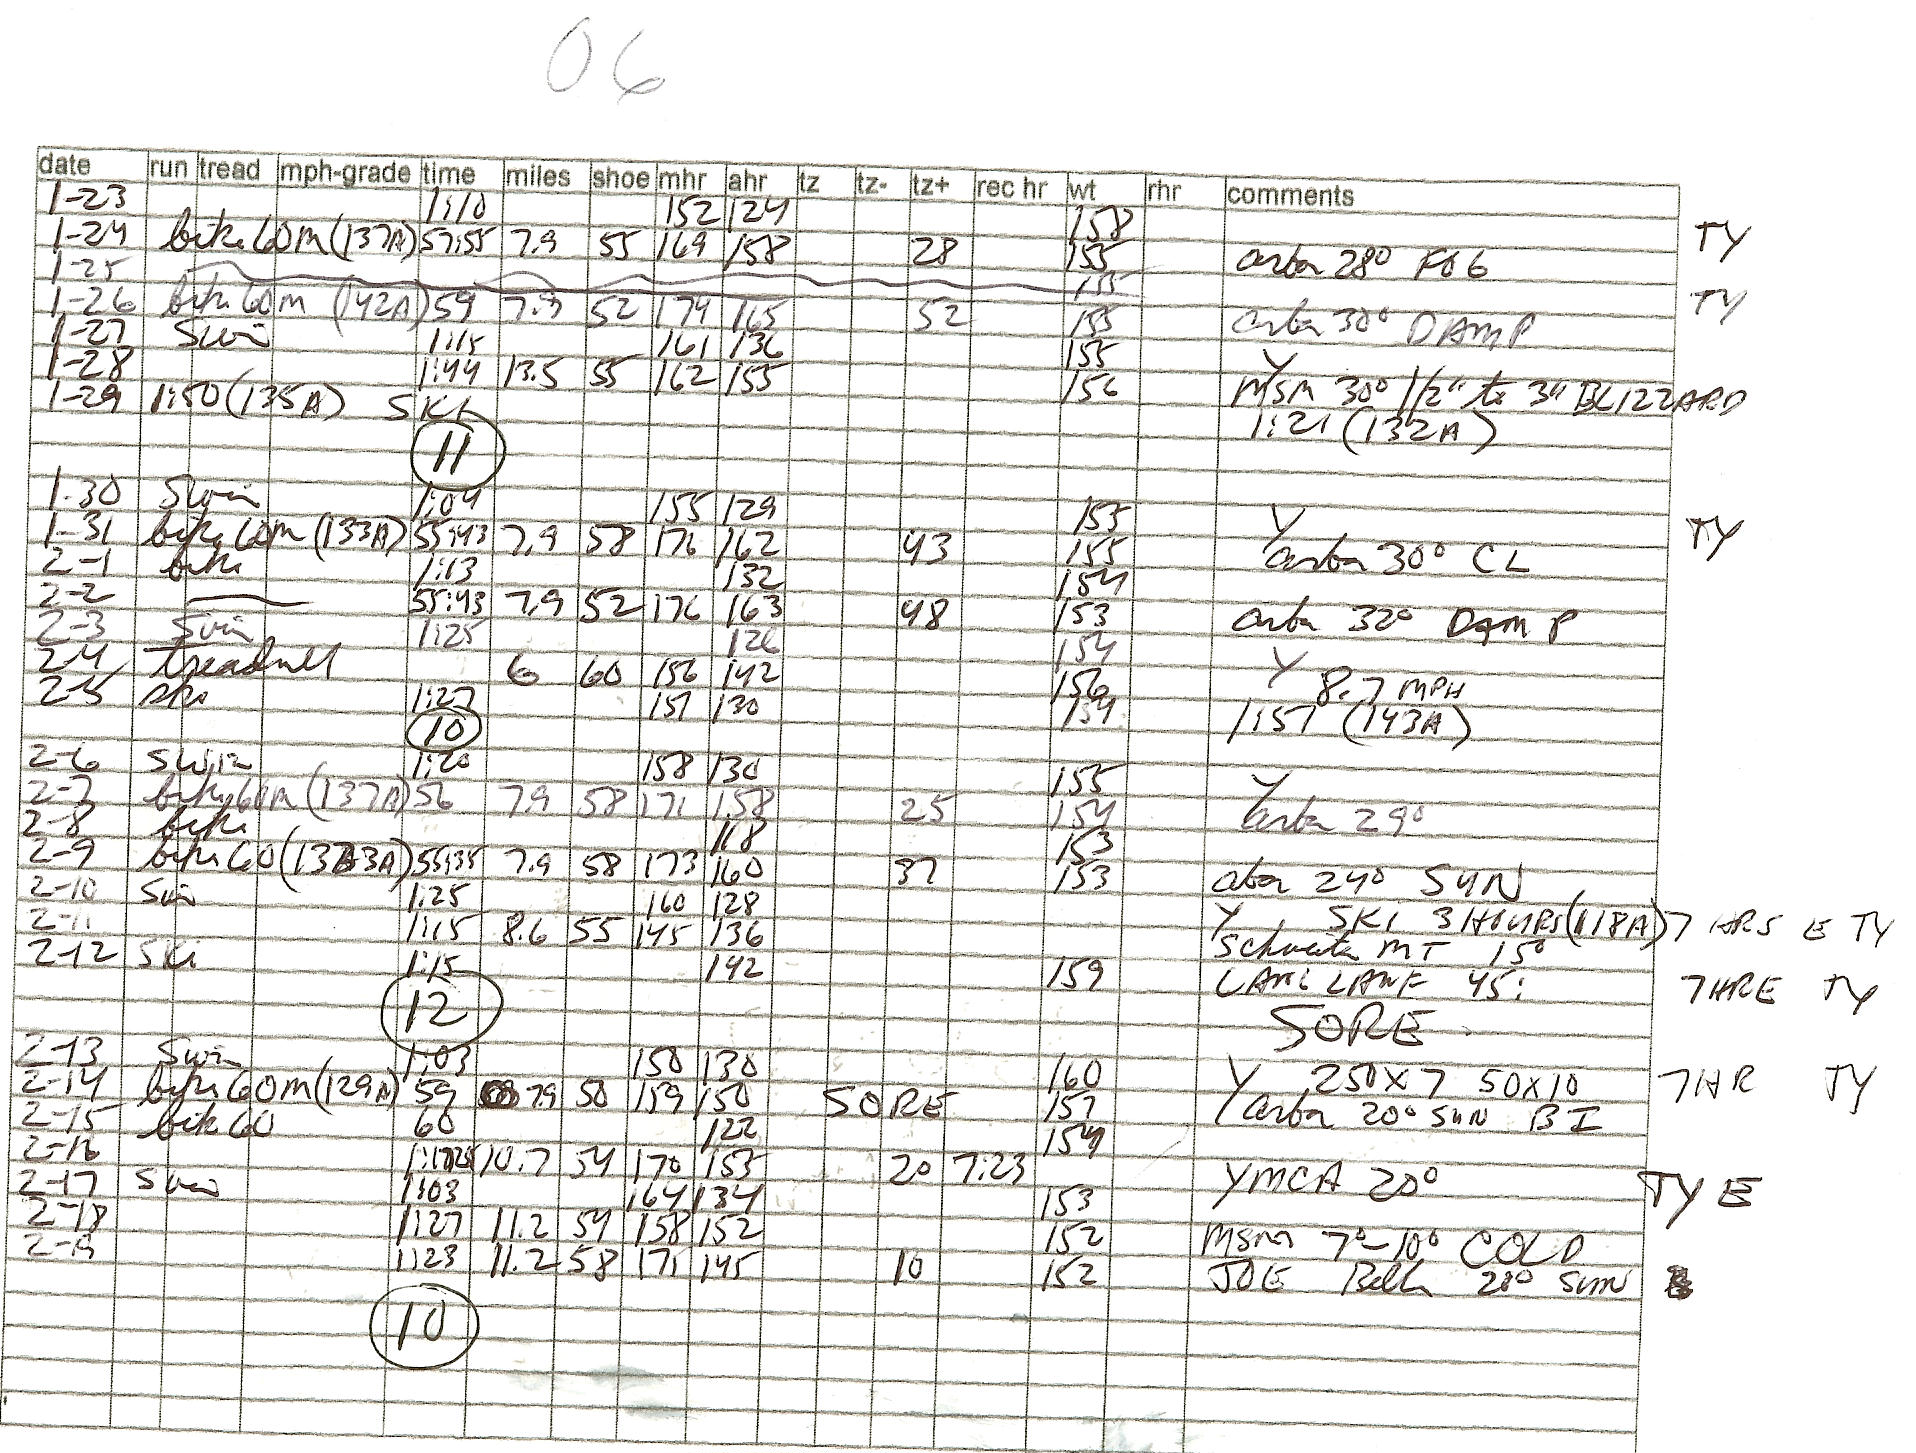 06
date run tread mph-grade time miles shoe mhr ahr tz tz- tz+ rec hr wt rhr comments
1-23 1:10 152 124 158
1-24 bike 60m (137A) 57:55 7.9 55 169 158 28 155 arbor 28° FOG TY
1-25 155
1-26 bike 60m (142A) 59 7.9 52 174 165 52 155 arbor 30° DAMP TY
1-27 Swim 1:15 161 136 155 Y
1-28 1:44 13.5 55 162 155 156 MSM 30° 1/2" to 3" BLIZZARD
1-29 1:50 (135A) SKI 1:21 (132A)
11
1-30 Swim 1:04 155 129 153 Y
1-31 bike 60m (133A) 55:43 7.9 58 176 162 43 155 arbor 30° CL TY
2-1 bike 1:13 132 154
2-2 55:43 7.9 52 176 163 48 153 arbor 32° DAMP
2-3 Swim 1:25 126 154 Y
2-4 treadmill 6 60 156 142 156 Y 8.7 MPH
2-5 ski 1:27 151 130 1:57 (143A)
10
2-6 Swim 1:20 158 130 155 Y
2-7 bike 60m (137A) 56 7.9 58 171 158 25 154 arbor 29°
2-8 bike 118 153
2-9 bike 60 55:35 7.9 58 173 160 37 153 arbor 24° SUN
2-10 Swim 1:25 160 128 Y SKI 3 HOURS (118A) 7 HRS E TY
2-11 1:15 8.6 55 145 136 MT 15°
2-12 SKi 1:15 142 159 45: 7HRE TY
12 SORE
2-13 Swim 1:03 150 130 160 Y 250X7 50X10 7HR TY
2-14 bike 60m (129A) 59 7.9 50 159 150 SORE 157 Y arbor 20° SUN BI
2-15 bike 60 60 122 154
2-16 10.7 54 170 155 20 7:23 YMCA 20°
2-17 Swim 1:03 164 134 153 TYE
2-18 1:27 11.2 54 158 152 152 MSM 7°-10° COLD
2-19 1:23 11.2 58 171 145 10 152 JOE 28° SUN
10